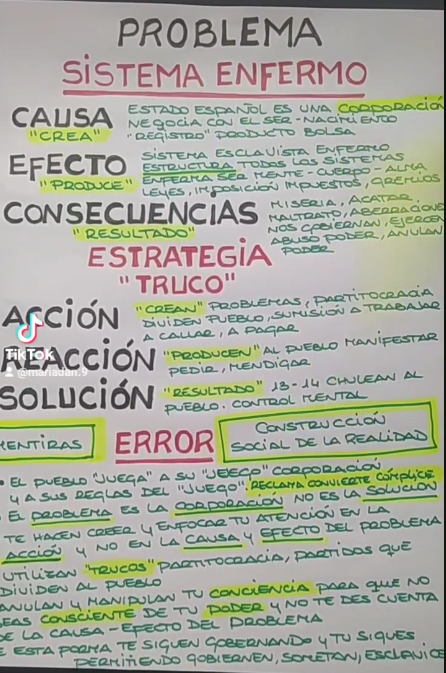 PROBLEMA
SISTEMA ENFERMO
CAUSA
"CREA"
ESTADO ESPAÑOL ES UNA CORPORACIÓN
NEGOCIA CON EL SER-NACIMIENTO
"REGISTRO" PRODUCTO BOLSA
EFECTO
"PRODUCE"
SISTEMA ESCLAVISTA ENFERMO
ESTRUCTURA TODOS LOS SISTEMAS
ENFERMA SER MENTE-CUERPO-ALMA
LEYES, IMPOSICIÓN IMPUESTOS, GREMIOS
CONSECUENCIAS
"RESULTADO"
MISERIA, ACATAR,
MALTRATO, ABERRACIONE
NOS GOBIERNAN, EJERCE
ABUSO PODER, ANULAN
PODER
ESTRATEGIA
"TRUCO"
ACCIÓN
"CREAN" PROBLEMAS, PARTITOCRACIA
DIVIDEN PUEBLO, SUMISIÓN A TRABAJAR
A CALLAR, A PAGAR
REACCIÓN
"PRODUCEN" AL PUEBLO MANIFESTAR
PEDIR, MENDIGAR
SOLUCIÓN
"RESULTADO" 13-14 CHULEAN AL
PUEBLO. CONTROL MENTAL
TikTok
@mariadan.9
MENTIRAS
ERROR
CONSTRUCCIÓN
SOCIAL DE LA REALIDAD
• EL PUEBLO "JUEGA" A SU "JUEGO" CORPORACIÓN
Y A SUS REGLAS DEL "JUEGO". RECLAMA CONVIERTE CÓMPLICE
EL PROBLEMA ES LA CORPORACIÓN NO ES LA SOLUCIÓN
TE HACEN CREER Y ENFOCAR TU ATENCIÓN EN LA
ACCIÓN Y NO EN LA CAUSA Y EFECTO DEL PROBLEMA
UTILIZAN "TRUCOS" PARTITOCRACIA, PARTIDOS QUE
DIVIDEN AL PUEBLO
ANULAN Y MANIPULAN TU CONCIENCIA PARA QUE NO
SEAS CONSCIENTE DE TU PODER Y NO TE DES CUENTA
DE LA CAUSA-EFECTO DEL PROBLEMA
E ESTA FORMA TE SIGUEN GOBERNANDO Y TU SIGUES
PERMITIENDO GOBIERNEN, SOMETAN, ESCLAVICE